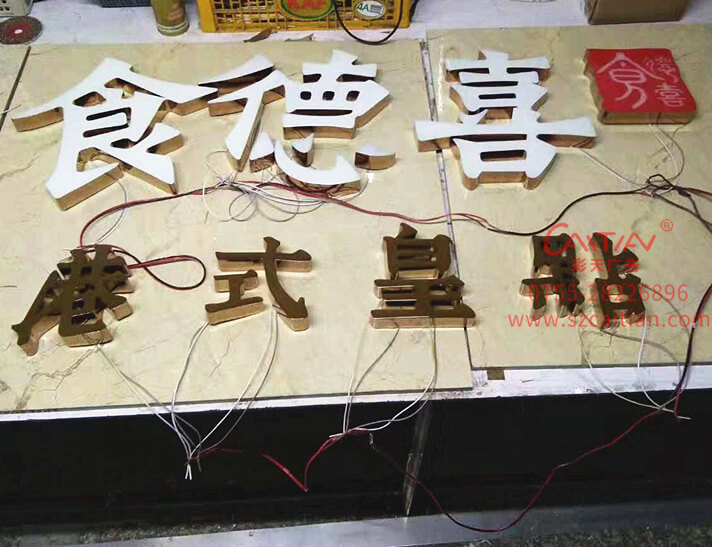 食德喜
食德喜
港式皇點
CAITIAN®
彩天广告
0755-28226896
www.szcaitian.com
4A